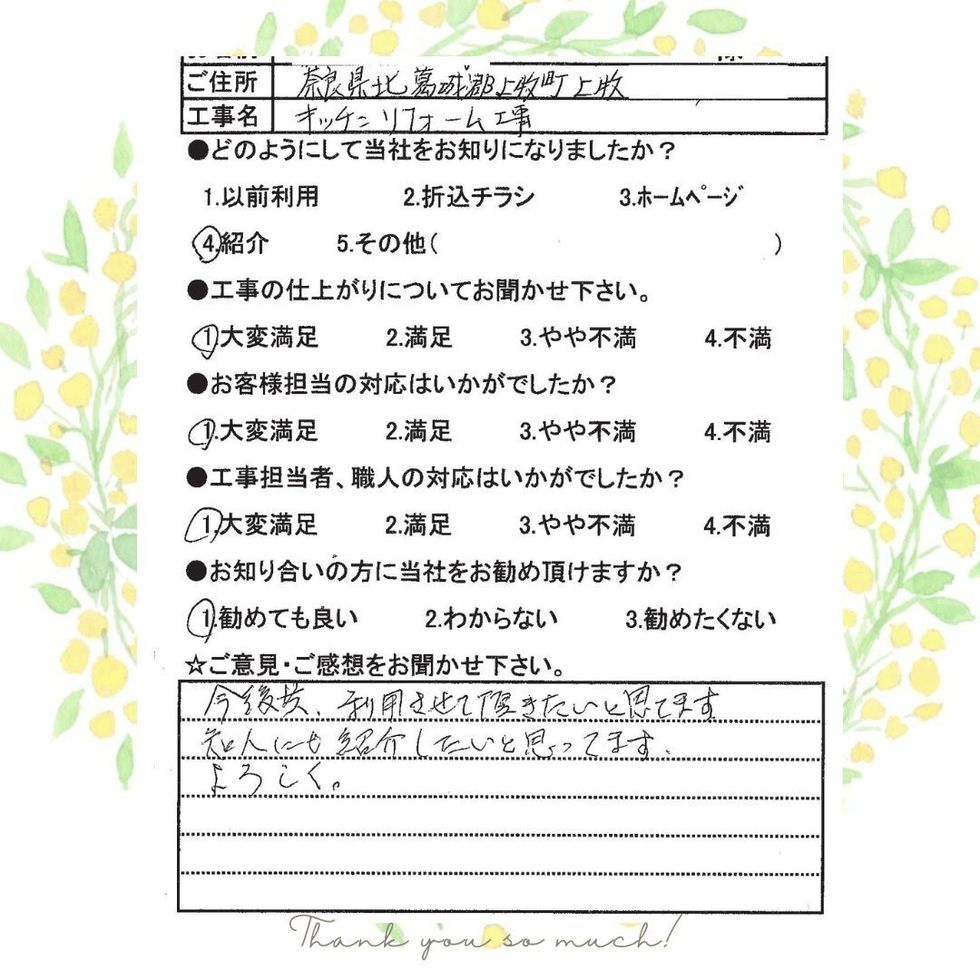 ご住所 奈良県北葛城郡上牧町上牧
工事名 キッチンリフォーム工事
●どのようにして当社をお知りになりましたか？
1.以前利用 2.折込チラシ 3.ホームページ
4.紹介 5.その他( )
●工事の仕上がりについてお聞かせ下さい。
1.大変満足 2.満足 3.やや不満 4.不満
●お客様担当の対応はいかがでしたか？
1.大変満足 2.満足 3.やや不満 4.不満
●工事担当者、職人の対応はいかがでしたか？
1.大変満足 2.満足 3.やや不満 4.不満
●お知り合いの方に当社をお勧め頂けますか？
1.勧めても良い 2.わからない 3.勧めたくない
☆ご意見・ご感想をお聞かせ下さい。
今後共、利用させて頂きたいと思てます
知人にも紹介したいと思ってます、
よろしく。
Thank you so much!